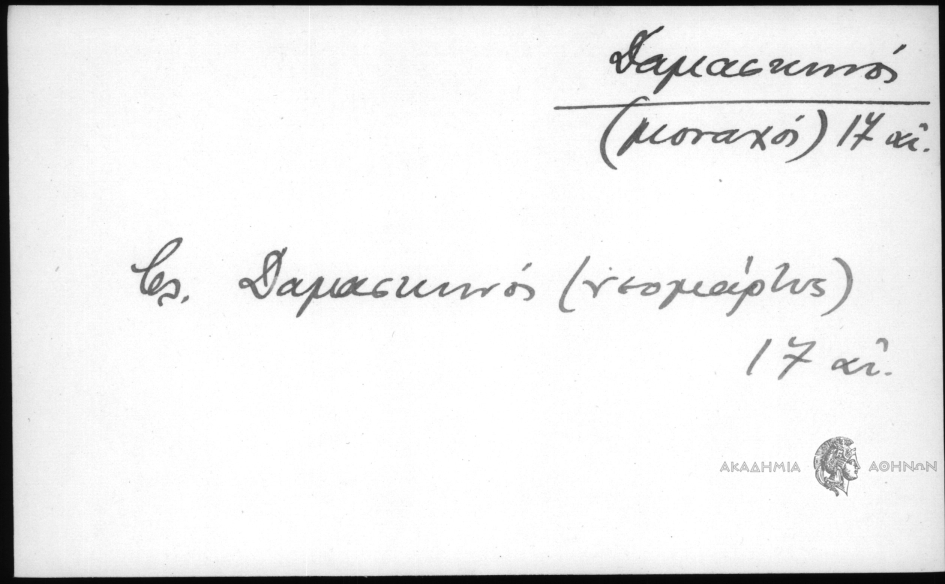 Δαμασκηνός
(μοναχός) 17 αἰ.
βλ. Δαμασκηνός (νεομάρτυς)
17 αἰ.
ΑΚΑΔΗΜΙΑ ΑΘΗΝΩΝ